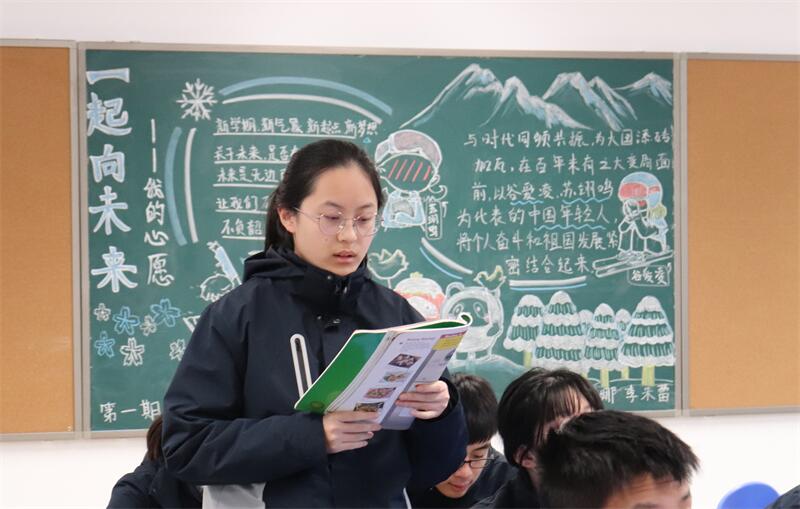 一起向未来
——我的心愿
新学期、新气象、新起点、新梦想
关于未来,是否
未来是无边
让我们
不负韶
与时代同频共振,为大国添砖
加瓦,在百年未有之大变局面
前,以谷爱凌、苏翊鸣
为代表的中国年轻人,
将个人奋斗和祖国发展紧
密结合起来
苏翊鸣
谷爱凌
第一期
娜 李米蕾